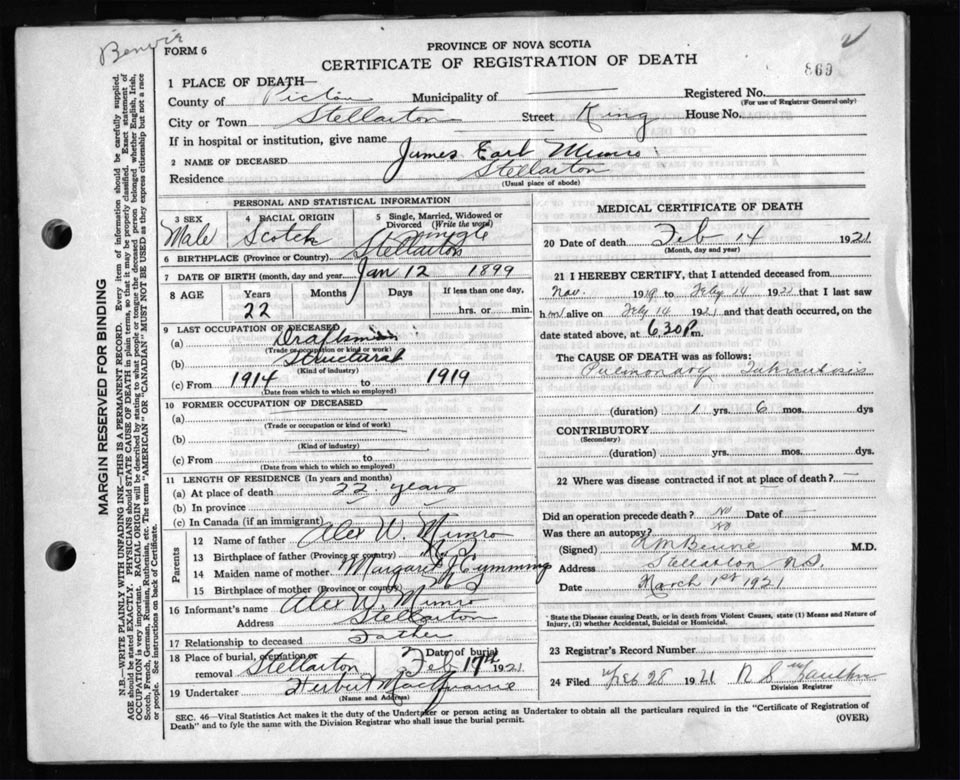 FORM 6
PROVINCE OF NOVA SCOTIA
CERTIFICATE OF REGISTRATION OF DEATH
869
1 PLACE OF DEATH—
County of Pictou Municipality of
Registered No.
(For use of Registrar General only)
City or Town Stellarton Street King House No.
If in hospital or institution, give name
2 NAME OF DECEASED James Earl Munro
Residence Stellarton
(Usual place of abode)
PERSONAL AND STATISTICAL INFORMATION
3 SEX Male
4 RACIAL ORIGIN Scotch
5 Single, Married, Widowed or Divorced (Write the word) Single
6 BIRTHPLACE (Province or Country) Stellarton
7 DATE OF BIRTH (month, day and year) Jan 12 1899
8 AGE Years Months Days If less than one day,
22 hrs. or min.
9 LAST OCCUPATION OF DECEASED
(a) Draftsman
(Trade or occupation or kind of work)
(b) Structural
(Kind of industry)
(c) From 1914 to 1919
(Date from which to which so employed)
10 FORMER OCCUPATION OF DECEASED
(a)
(Trade or occupation or kind of work)
(b)
(Kind of industry)
(c) From to
(Date from which to which so employed)
11 LENGTH OF RESIDENCE (In years and months)
(a) At place of death 22 years
(b) In province
(c) In Canada (if an immigrant)
Parents
12 Name of father Alex W. Munro
13 Birthplace of father (Province or country) N S
14 Maiden name of mother Margaret J Cumming
15 Birthplace of mother (Province or country) N S
16 Informant's name Alex W. Munro
Address Stellarton
17 Relationship to deceased Father
18 Place of burial, cremation or removal Stellarton Date of burial Feb 17th 1921
19 Undertaker Herbert
(Name and Address)
MEDICAL CERTIFICATE OF DEATH
20 Date of death Feb 14 1921
(Month, day and year)
21 I HEREBY CERTIFY, that I attended deceased from
Nov. 1919 to Feby 14 1921 that I last saw
him alive on Feby 14 1921 and that death occurred, on the
date stated above, at 6.30 P.m.
The CAUSE OF DEATH was as follows:
Pulmonary Tuberculosis
(duration) 1 yrs. 6 mos. dys
CONTRIBUTORY
(Secondary)
(duration) yrs. mos. dys.
22 Where was disease contracted if not at place of death? —
Did an operation precede death? No Date of —
Was there an autopsy? No
(Signed) M.D.
Address Stellarton N.S.
Date March 1st 1921
* State the Disease causing Death, or in death from Violent Causes, state (1) Means and Nature of Injury, (2) whether Accidental, Suicidal or Homicidal.
23 Registrar's Record Number
24 Filed Feb 28 1921
Division Registrar
SEC. 46—Vital Statistics Act makes it the duty of the Undertaker or person acting as Undertaker to obtain all the particulars required in the "Certificate of Registration of
Death" and to fyle the same with the Division Registrar who shall issue the burial permit.
(OVER)
MARGIN RESERVED FOR BINDING
N.B.—WRITE PLAINLY WITH UNFADING INK—THIS IS A PERMANENT RECORD. Every item of information should be carefully supplied.
AGE should be stated EXACTLY. PHYSICIANS should STATE CAUSE OF DEATH in plain terms, so that it may be properly classified. Exact statement of
OCCUPATION is very important. RACIAL ORIGIN will be described by stating to what people or tongue the deceased person belonged whether English, Irish,
Scotch, French, German, Russian, Ruthenian, etc. The terms "AMERICAN" OR "CANADIAN" MUST NOT BE USED as they express citizenship but not a race
or people. See instructions on back of Certificate.